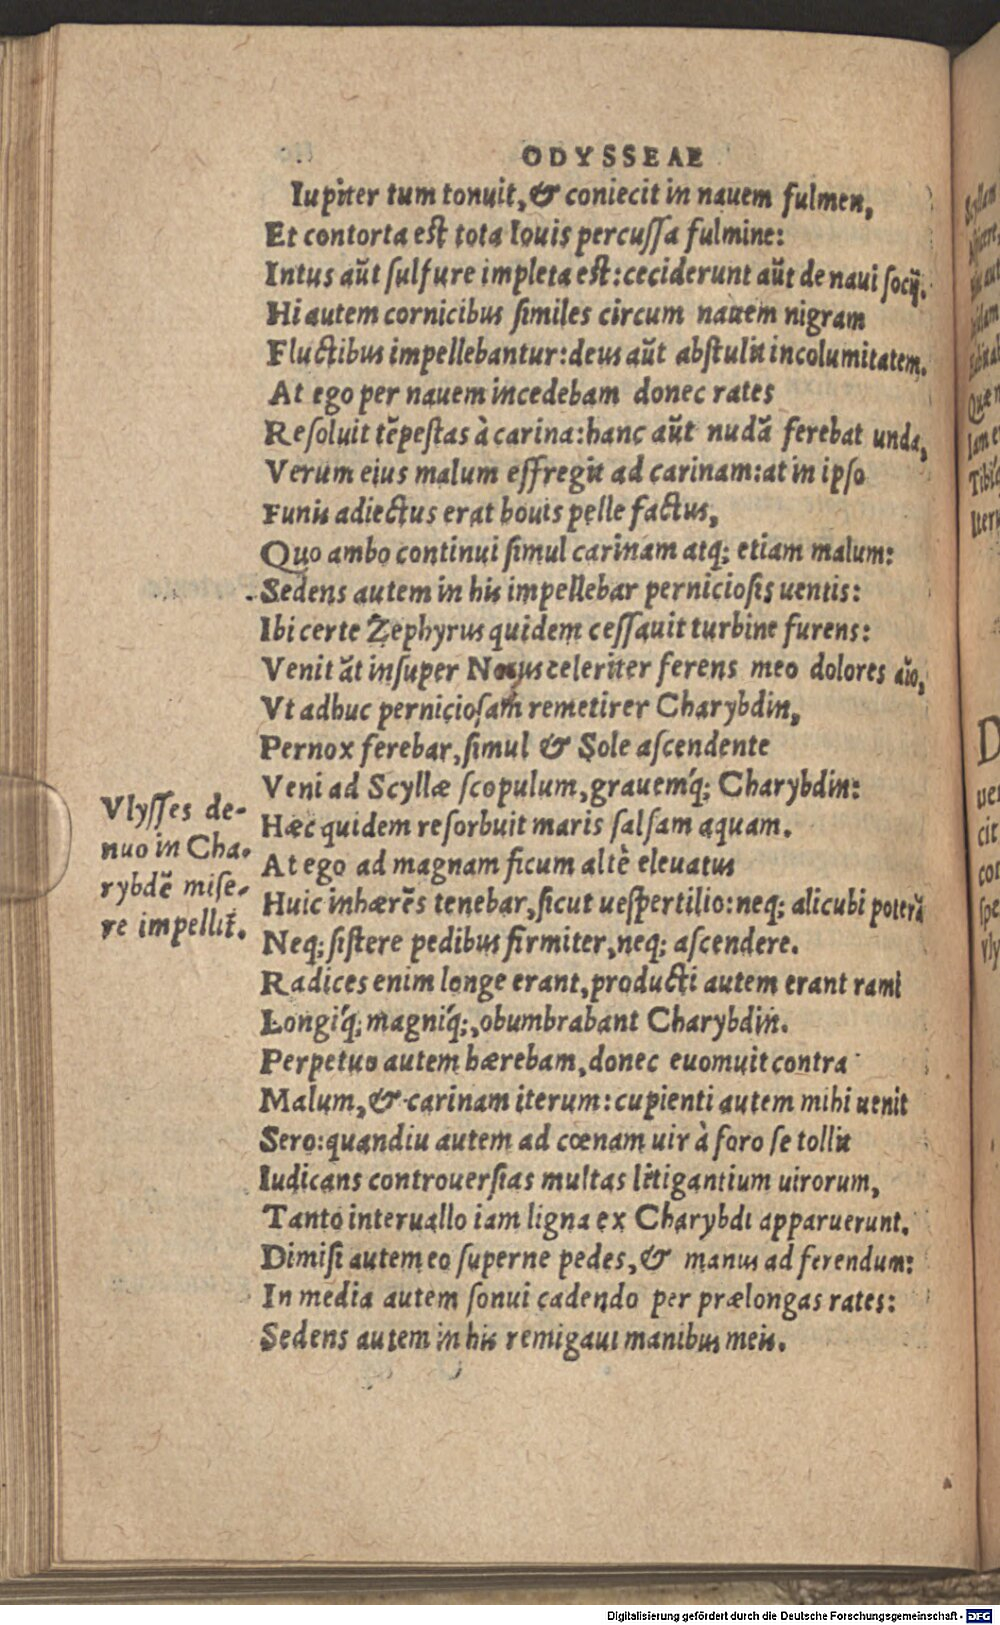 ODYSSEAE
Iupiter tum tonuit, & coniecit in nauem fulmen,
Et contorta est tota Iouis percussa fulmine:
Intus aūt sulfure impleta est: ceciderunt aūt de naui socij.
Hi autem cornicibus similes circum nauem nigram
Fluctibus impellebantur: deus aūt abstulit incolumitatem.
At ego per nauem incedebam donec rates
Resoluit tēpestas à carina: hanc aūt nudā ferebat unda,
Verum eius malum effregit ad carinam: at in ipso
Funis adiectus erat bouis pelle factus,
Quo ambo continui simul carinam atq; etiam malum:
Sedens autem in his impellebar perniciosis uentis:
Ibi certe Zephyrus quidem cessauit turbine furens:
Venit āt insuper Notus celeriter ferens meo dolores aīo,
Vt adhuc perniciosam remetirer Charybdin,
Pernox ferebar, simul & Sole ascendente
Veni ad Scyllæ scopulum, grauemq́; Charybdin:
Hæc quidem resorbuit maris salsam aquam.
At ego ad magnam ficum altè eleuatus
Huic inhærēs tenebar, sicut uespertilio: neq; alicubi poterā
Neq; sistere pedibus firmiter, neq; ascendere.
Radices enim longe erant, producti autem erant rami
Longiq́; magniq́;, obumbrabant Charybdin.
Perpetuo autem hærebam, donec euomuit contra
Malum, & carinam iterum: cupienti autem mihi uenit
Sero: quandiu autem ad cœnam uir à foro se tollit
Iudicans controuersias multas litigantium uirorum,
Tanto interuallo iam ligna ex Charybdi apparuerunt.
Dimisi autem eo superne pedes, & manus ad ferendum:
In media autem sonui cadendo per prælongas rates:
Sedens autem in his remigaui manibus meis.
Vlysses de-
nuo in Cha-
rybdē mise-
re impellit.
Digitalisierung gefördert durch die Deutsche Forschungsgemeinschaft - DFG